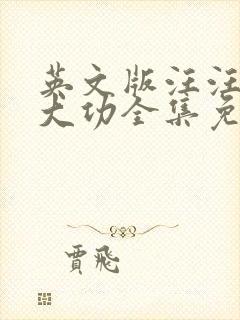 英文版汪汪
犬功全集免
賈飛